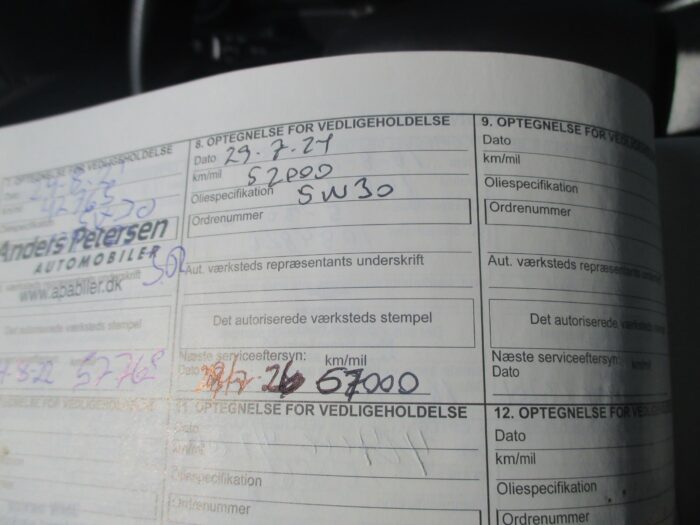 7. OPTEGNELSE FOR VEDLIGEHOLDELSE
42763
Anders Petersen
AUTOMOBILER
Aut. værksteds repræsentants underskrift
www.apabiler.dk
Det autoriserede værksteds stempel
Næste serviceeftersyn: km/mil
8-22 57768
8. OPTEGNELSE FOR VEDLIGEHOLDELSE
Dato 29.7.24
km/mil 52000
Oliespecifikation 5W30
Ordrenummer
Aut. værksteds repræsentants underskrift
Det autoriserede værksteds stempel
Næste serviceeftersyn: km/mil
Dato 26 67000
9. OPTEGNELSE FOR
Dato
km/mil
Oliespecifikation
Ordrenummer
Aut. værksteds
Det autoriserede værksteds
Næste serviceeftersyn:
Dato
OPTEGNELSE FOR VEDLIGEHOLDELSE
11. OPTEGNELSE FOR VEDLIGEHOLDELSE
Dato
km/mil
Oliespecifikation
Ordrenummer
12. OPTEGNELSE FOR
Dato
km/mil
Oliespecifikation
Ordrenummer